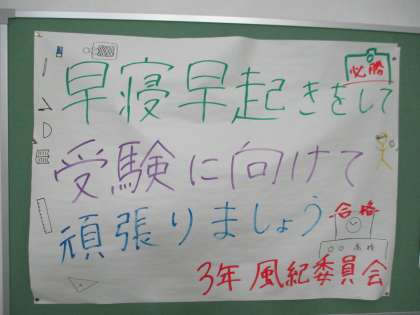 早寝早起きをして
必勝
受験に向けて
頑張りましょう
合格
○○高校
3年 風紀委員会